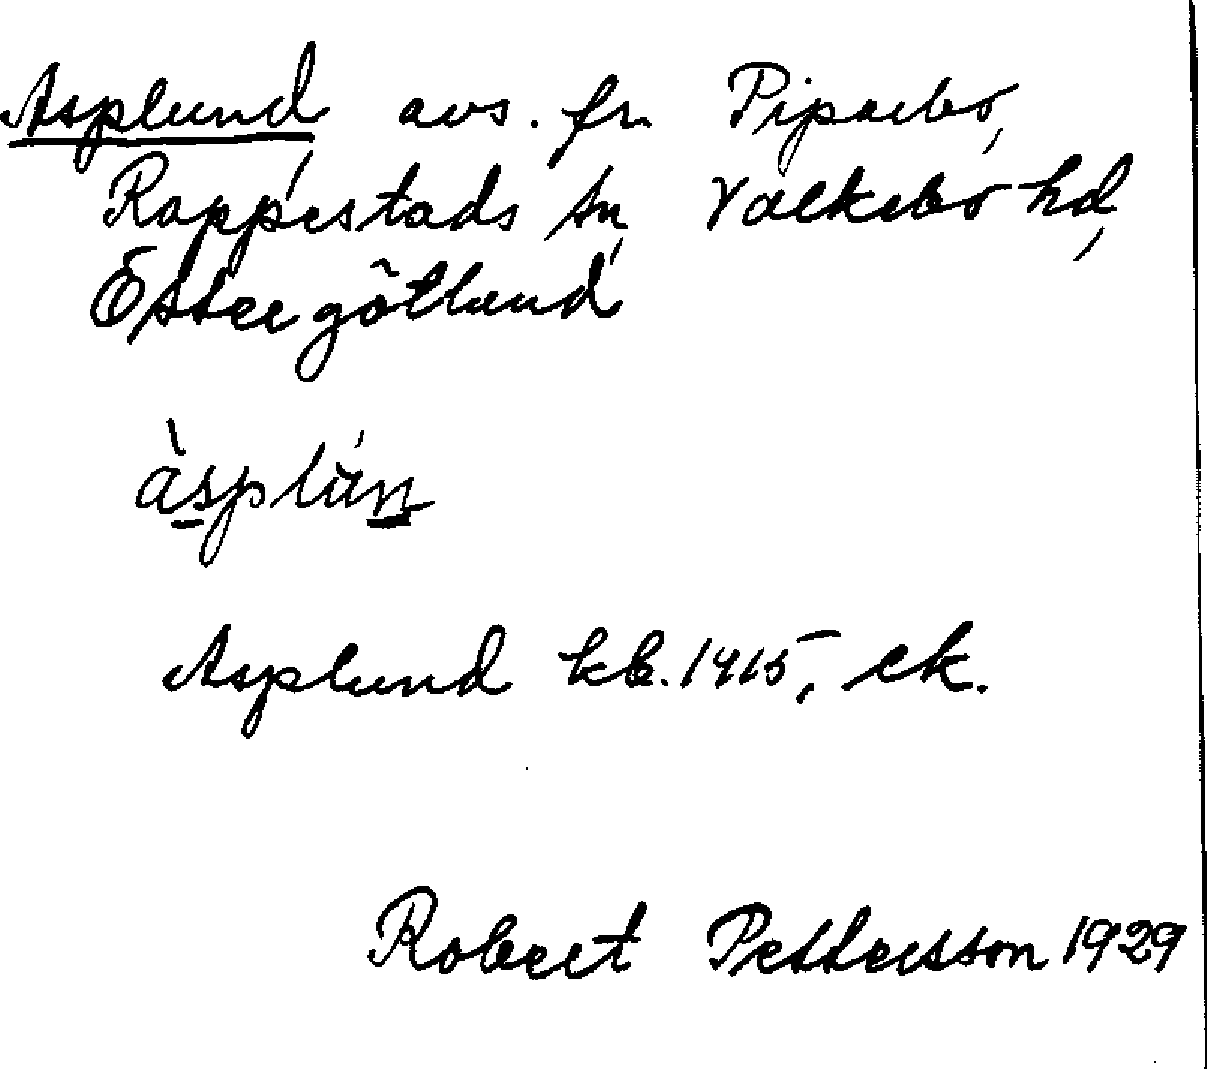 Asplund avs. fr. Piparbo,
Rappestads sn Valkebo hd,
Östergötland
àsplún
Asplund kb. 1915, ek.
Robert Pettersson 1929